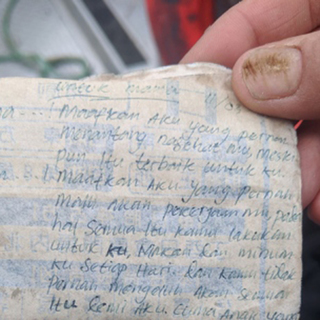 untuk mama
... ! Maafkan Aku yang pernah
menantang nasehat mu, meski
pun Itu terbaik untuk ku
! maafkan Aku yang pernah
malu akan pekerjaan mu,
hal semua Itu kamu lakukan
untuk ku, Makan dan minum
ku setiap Hari. dan kamu tidak
pernah mengeluh akan semua
Itu demi Aku. Cuma Anak yang